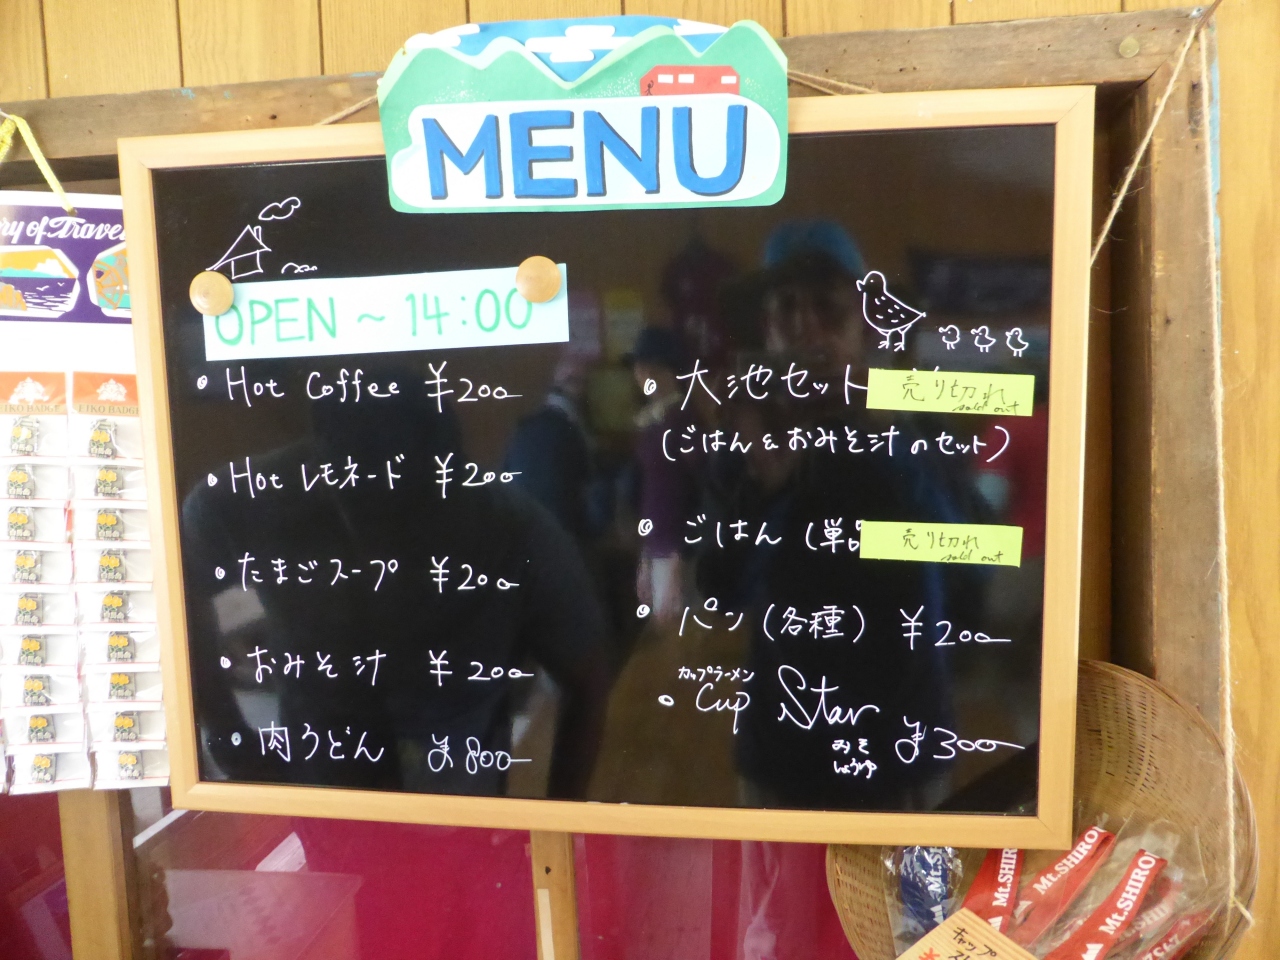 MENU
OPEN ~ 14:00
Hot Coffee ¥200
Hot レモネード ¥200
たまごスープ ¥200
おみそ汁 ¥200
肉うどん ¥800
大池セット 売り切れ
sold out
(ごはん&おみそ汁のセット)
ごはん (単品 売り切れ
sold out
パン(各種) ¥200
カップラーメン
Cup Star
みそ
しょうゆ
¥300
ry of Travel
EIKO BADGE
EIKO BADGE
Mt.SHIRO
Mt.SHIRO
Mt.SHIRO
キャップ